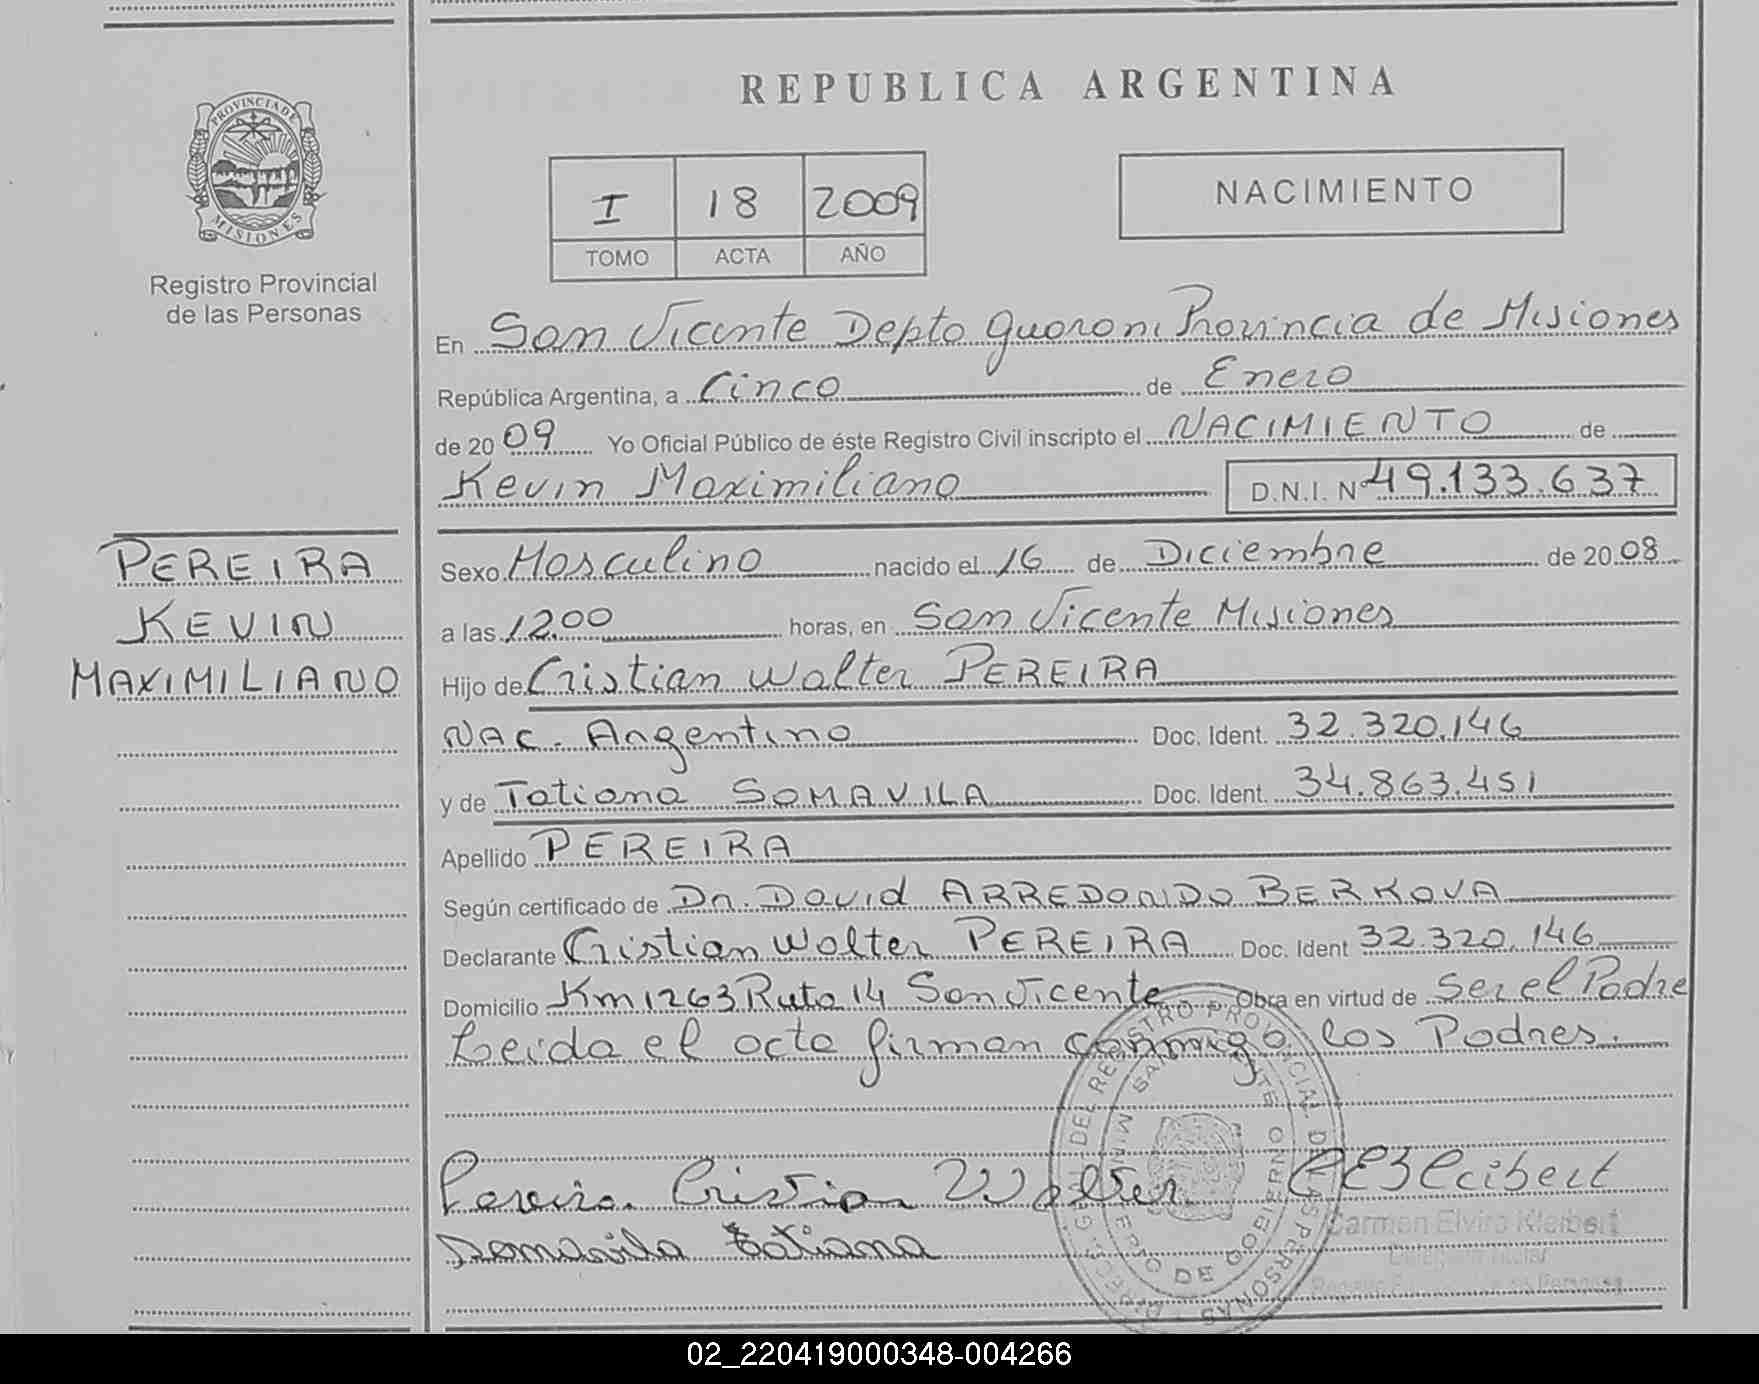 REPUBLICA ARGENTINA
PROVINCIA DE
MISIONES
Registro Provincial
de las Personas
I 18 2009
TOMO ACTA AÑO
NACIMIENTO
En San Vicente Depto Guarani Provincia de Misiones
República Argentina, a Cinco de Enero
de 2009 Yo Oficial Público de éste Registro Civil inscripto el NACIMIENTO de
Kevin Maximiliano D.N.I. Nº 49.133.637
PEREIRA
KEVIN
MAXIMILIANO
Sexo Masculino nacido el 16 de Diciembre de 2008
a las 12.00 horas, en San Vicente Misiones
Hijo de Cristian Walter PEREIRA
NAC. Argentino Doc. Ident. 32.320.146
y de Tatiana SOMAVILA Doc. Ident. 34.863.451
Apellido PEREIRA
Según certificado de Dr. David ARREDONDO BERKOVA
Declarante Cristian Walter PEREIRA Doc. Ident 32.320.146
Domicilio Km 1263 Ruta 14 San Vicente Obra en virtud de Ser el Padre
Leida el acta firman conmigo los Padres.
Pereira Cristian Walter CEKleibert
Somavila Tatiana
Carmen Elvira Kleibert
DEL REGISTRO PROVINCIAL DE LAS PERSONAS
SAN VICENTE
DE GOBIERNO
02_220419000348-004266